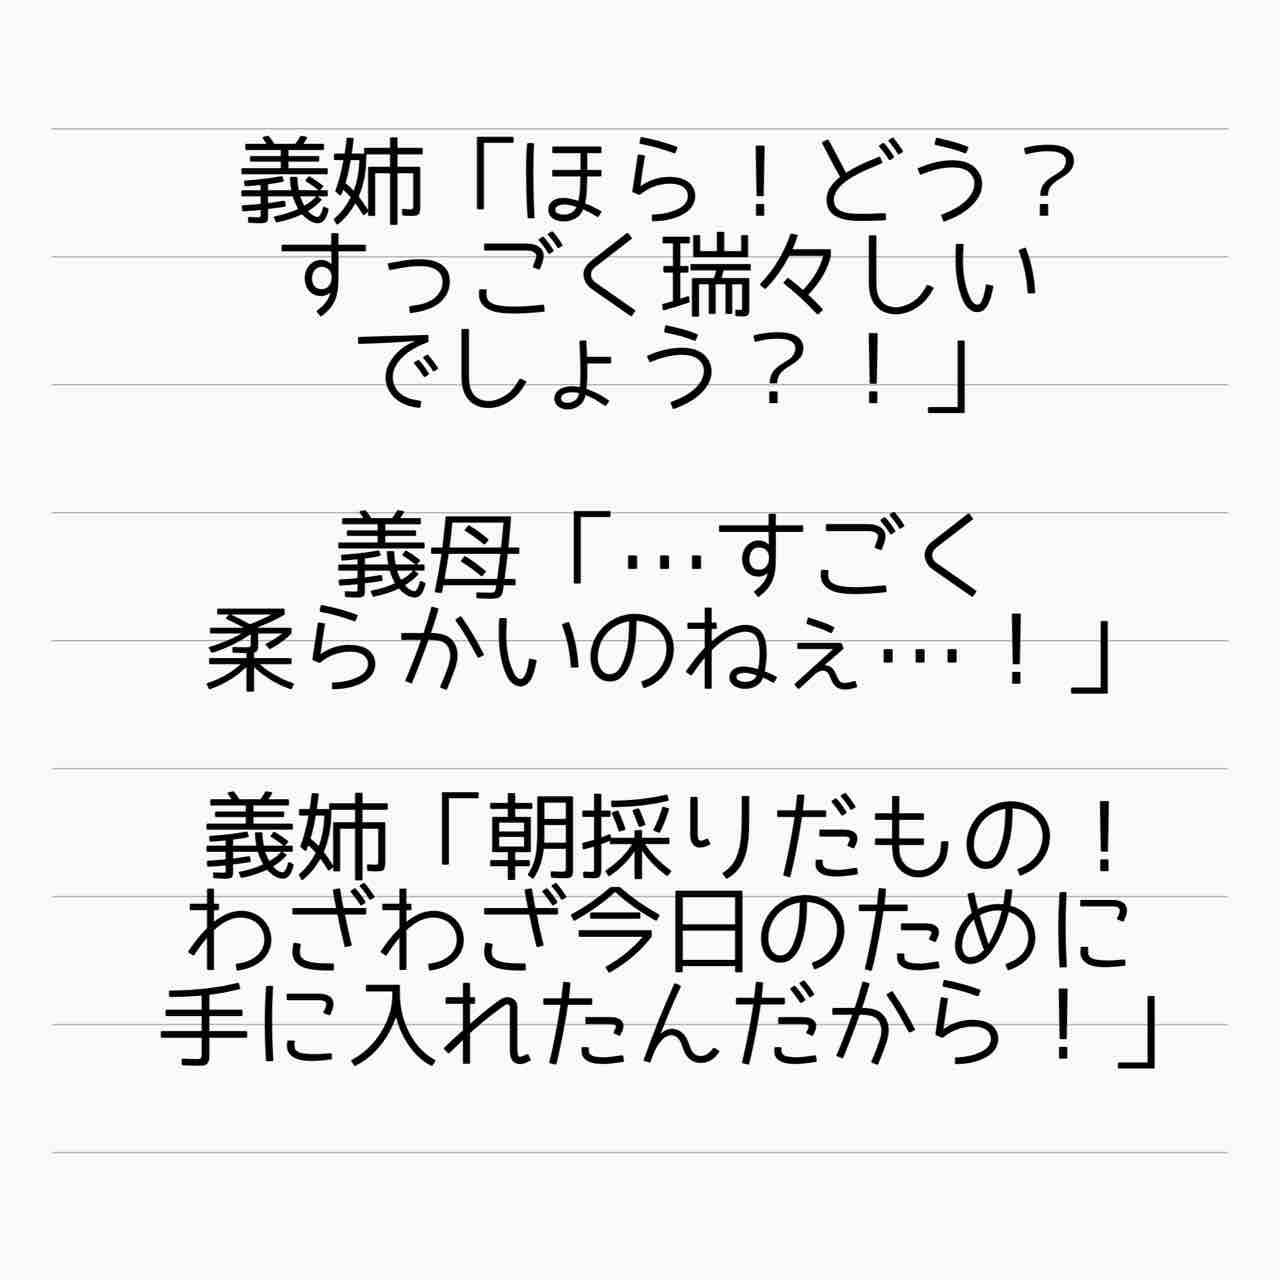 義姉「ほら！どう？
すっごく瑞々しい
でしょう？！」
義母「…すごく
柔らかいのねぇ…！」
義姉「朝採りだもの！
わざわざ今日のために
手に入れたんだから！」